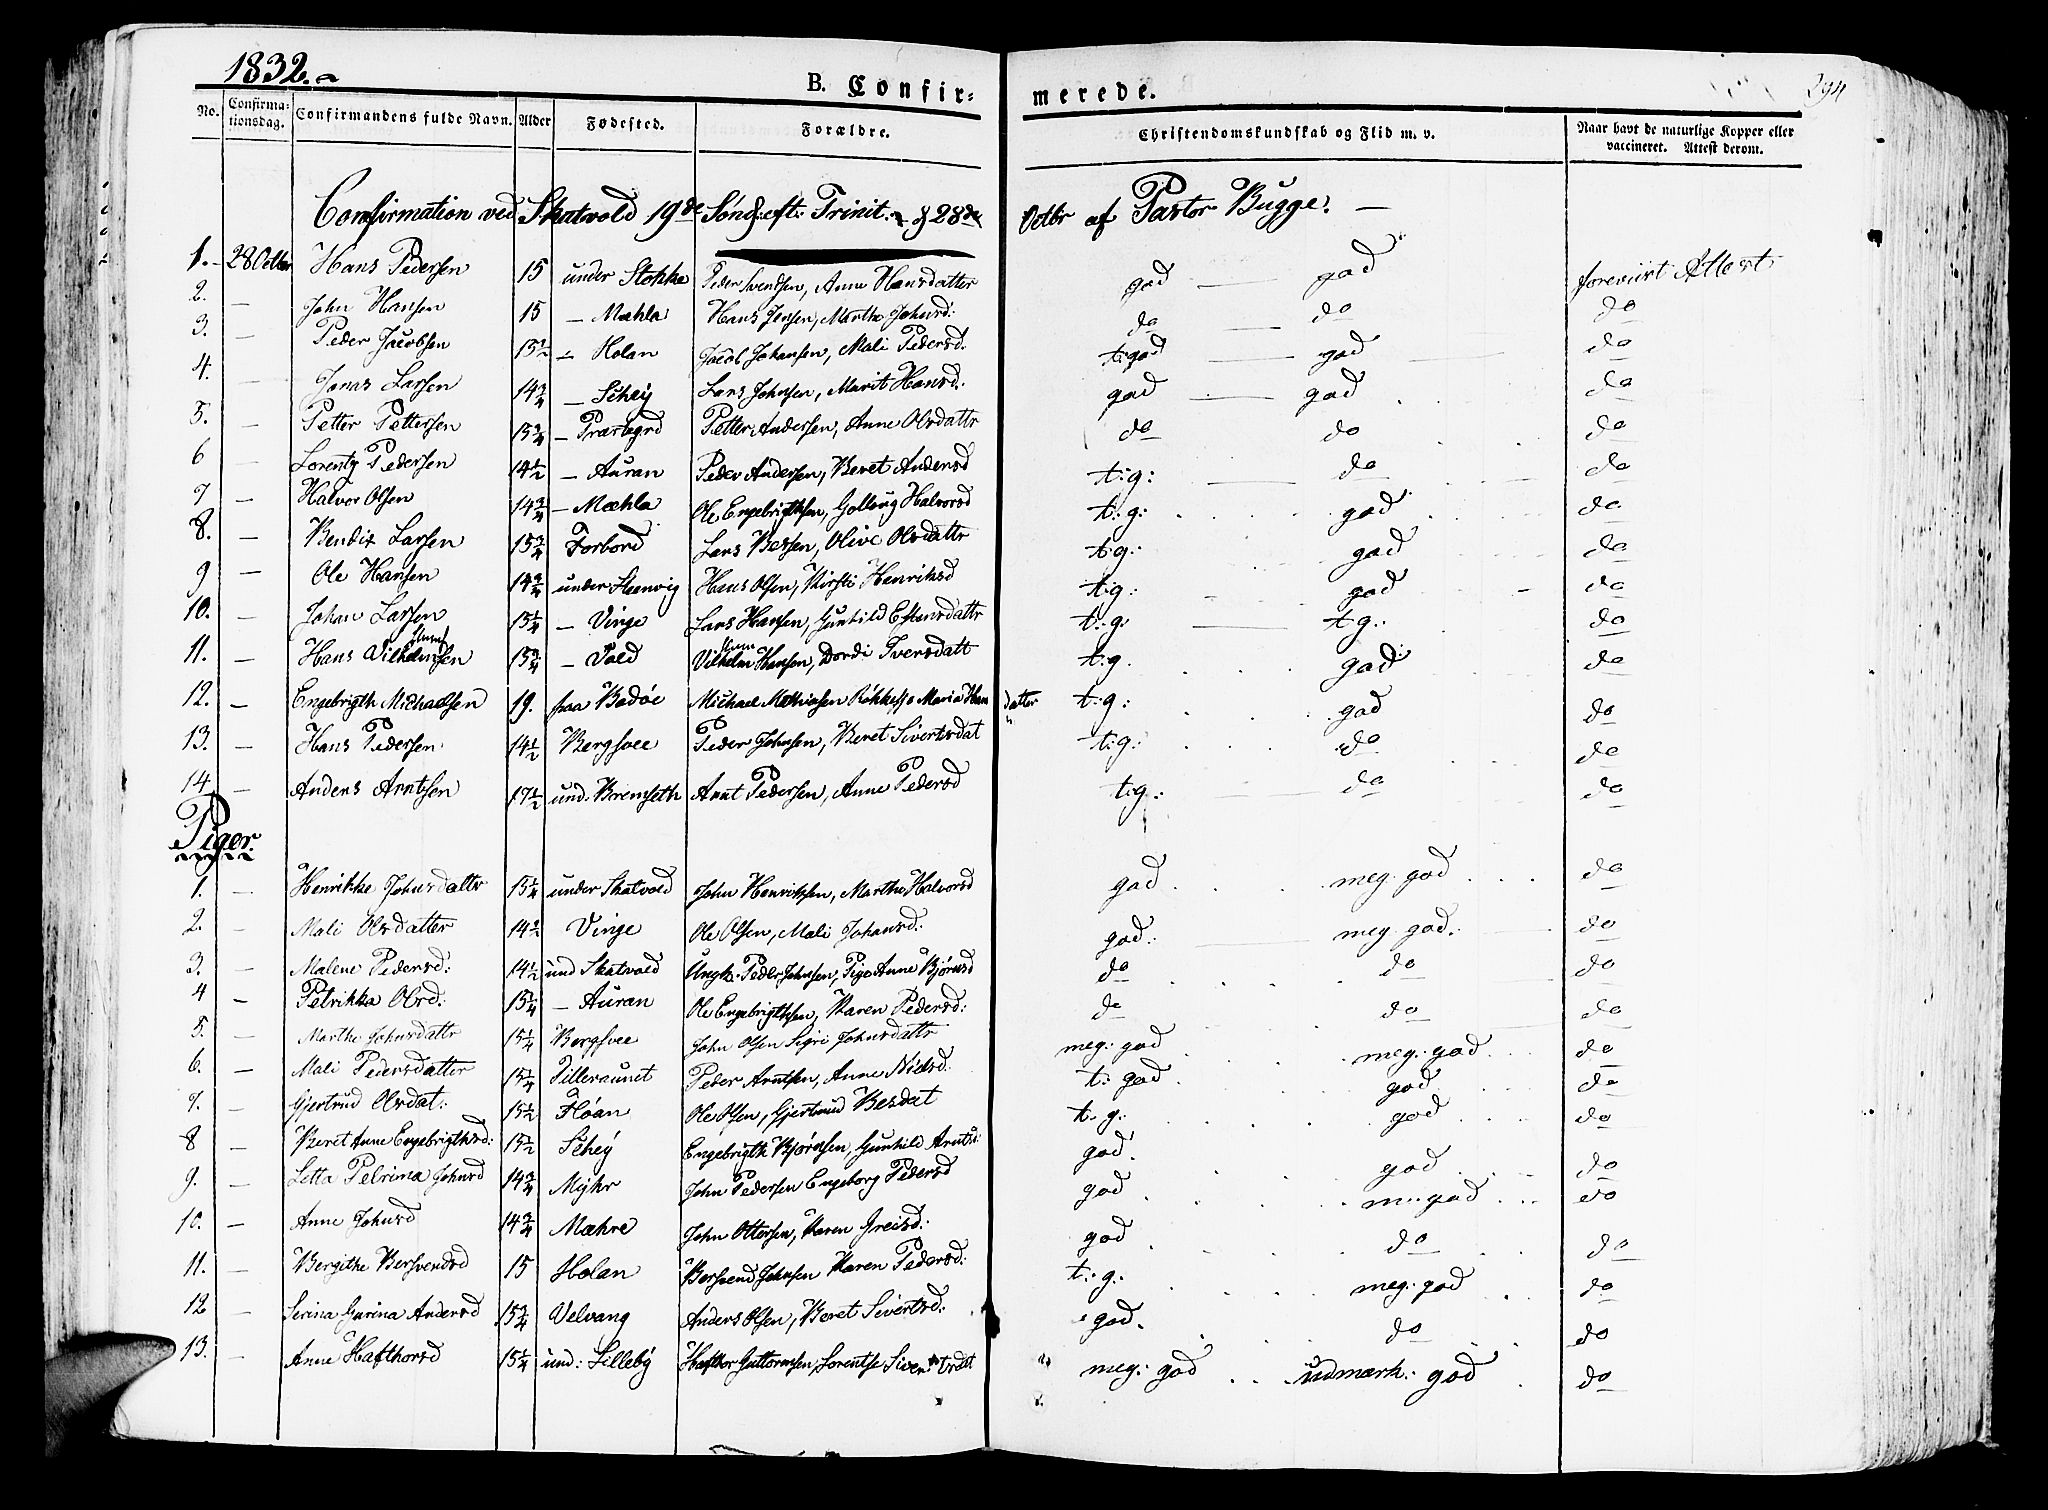 1832.
B. Confir-
merede.
294
No. Confirmationsdag. Confirmandens fulde Navn. Alder Fødested. Forældre. Christendomskundskab og Flid m. v. Naar havt de naturlige Kopper eller vaccineret. Attest derom.
Confirmation ved Skatvold 19de Sønd: eft: Trinit. 28de Octbr af Pastor Bugge. —
1. – 28 Octbr Hans Pedersen 15 under Stokke Peder Svendsen, Anne Hansdatter god — god foreviist Attest
2. — John Hansen 15 — Mæhla Hans Jensen, Marthe Johnsd: do — do do
3. — Peder Jacobsen 15½ — Holan Jacob Johansen, Mali Pedersd. t: god — god do
4. — Jonas Larsen 14¾ — Schey Lars Johnsen, Marit Hansd: god — god do
5. — Petter Pettersen 15¾ — Præstegrd Petter Andersen, Anne Olsdattr do do do
6 — Lorentz Pedersen 14½ — Auran Peder Andersen, Beret Andersd t: g: — do do
7 — Halvor Olsen 14¾ — Mæhla Ole Engebrigthsen, Gollaug Halvorsd t: g: god do
8. — Bendix Larsen 15¾ Forbord Lars Besen, Olive Olsdattr t: g: god do
9 — Ole Hansen 14¾ under Steenvig Hans Olsen, Kirsti Henriksd t: g: god do
10. — Johan Larsen 15¼ — Vinge Lars Hansen, Gunhild Estensdattr t: g: — t. g: do
11. — Hans Vilhelmsen 15¾ — Vold Vilhelm Hansen, Dordi Iversdatt t: g. god do
12. — Engebrigth Michaelsen 19. fra Bodøe Michael Mathiasen Maria Hansdatter t: g: god do
13. — Hans Pedersen 14½ Bergsvee Peder Johnsen, Beret Sivertsdat t: g: do do
14 Anders Arntsen 17½ und. Bremseth Arnt Pedersen, Anne Pedersd t: g: do do
Piger.
1. — Henrikke Johnsdattr 15¼ under Skatvold John Henriksen, Marthe Halvorsd god meg. god do
2. — Mali Olsdatter 14½ Vinge Ole Olsen, Mali Johansd: god: — meg god: do
3. — Malene Pedersd: 14½ und Skatvold Ungk. Peder Johnsen, Pige Anne Bjørnsd do do do
4 — Petrikka Olsd: 15¼ — Auran Ole Engebrigthsen, Karen Pedersd: do do do
5. — Marthe Johnsdattr 15¼ Bergsvee John Olsen Sigri Johnsdattr meg: god meg: god do
6. — Mali Pedersdatter 15¼ Tilleraunet Peder Arntsen, Anne Nielsd. t: god god do
7. — Gjertrud Olsdat: 15½ Fløan Ole Olsen, Gjertrud Besdat t. g: god do
8 — Beret Anne Engebrigthsd: 15½ Schey Engebrigth Bjørnsen, Gunhild Arntsd: god. god do
9. — Letta Petrina Johnsd 14¾ Myhr John Pedersen Engeborg Pedersd god m: god do
10. — Anne Johnsd 14¾ Mæhre John Ottersen, Karen Greisd: god do do
11. — Bergithe Bersvendsd 15 Holan Bersvend Johnsen Karen Pedersd: t: g: meg: god do
12 — Serina Gurina Andersd 15¾ Velvang Anders Olsen, Beret Sivertsd: god. do do
13. — Anne Hafthorsd 15¼ und: Lilleby Hafthor Guttormsen, Lorentse Sivertsdt meg: god udmærk: god do